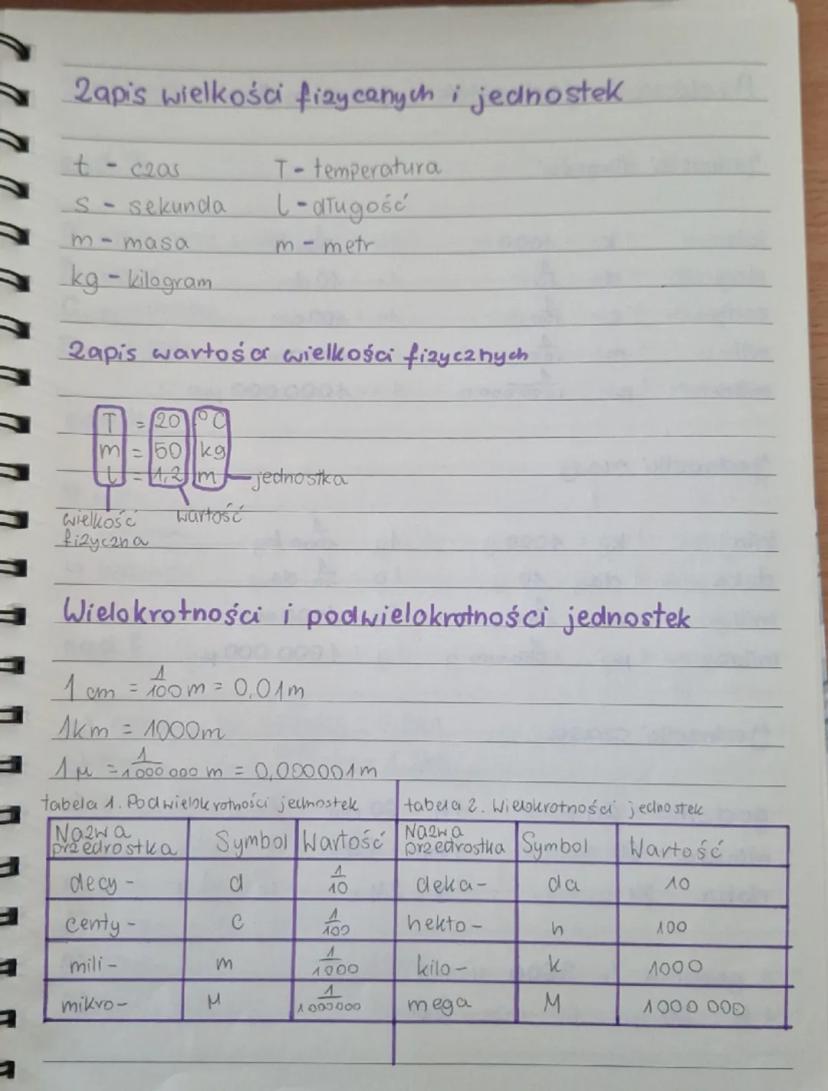 Zapis wielkości fizycznych i jednostek
t - czas T - temperatura
s - sekunda l - długość
m - masa m - metr
kg - kilogram
Zapis wartości wielkości fizycznych
T = 20 °C
m = 50 kg
l = 1,2 m jednostka
wielkość fizyczna wartość
Wielokrotności i podwielokrotności jednostek
1 cm = 1/100 m = 0,01m
1km = 1000m
1 μ = 1/1000 000 m = 0,000001m
tabela 1. Podwielokrotności jednostek tabela 2. Wielokrotności jednostek
Nazwa przedrostka Symbol Wartość Nazwa przedrostka Symbol Wartość
decy- d 1/10 deka- da 10
centy- c 1/100 hekto- h 100
mili- m 1/1000 kilo- k 1000
mikro- μ 1/1000000 mega M 1000 000